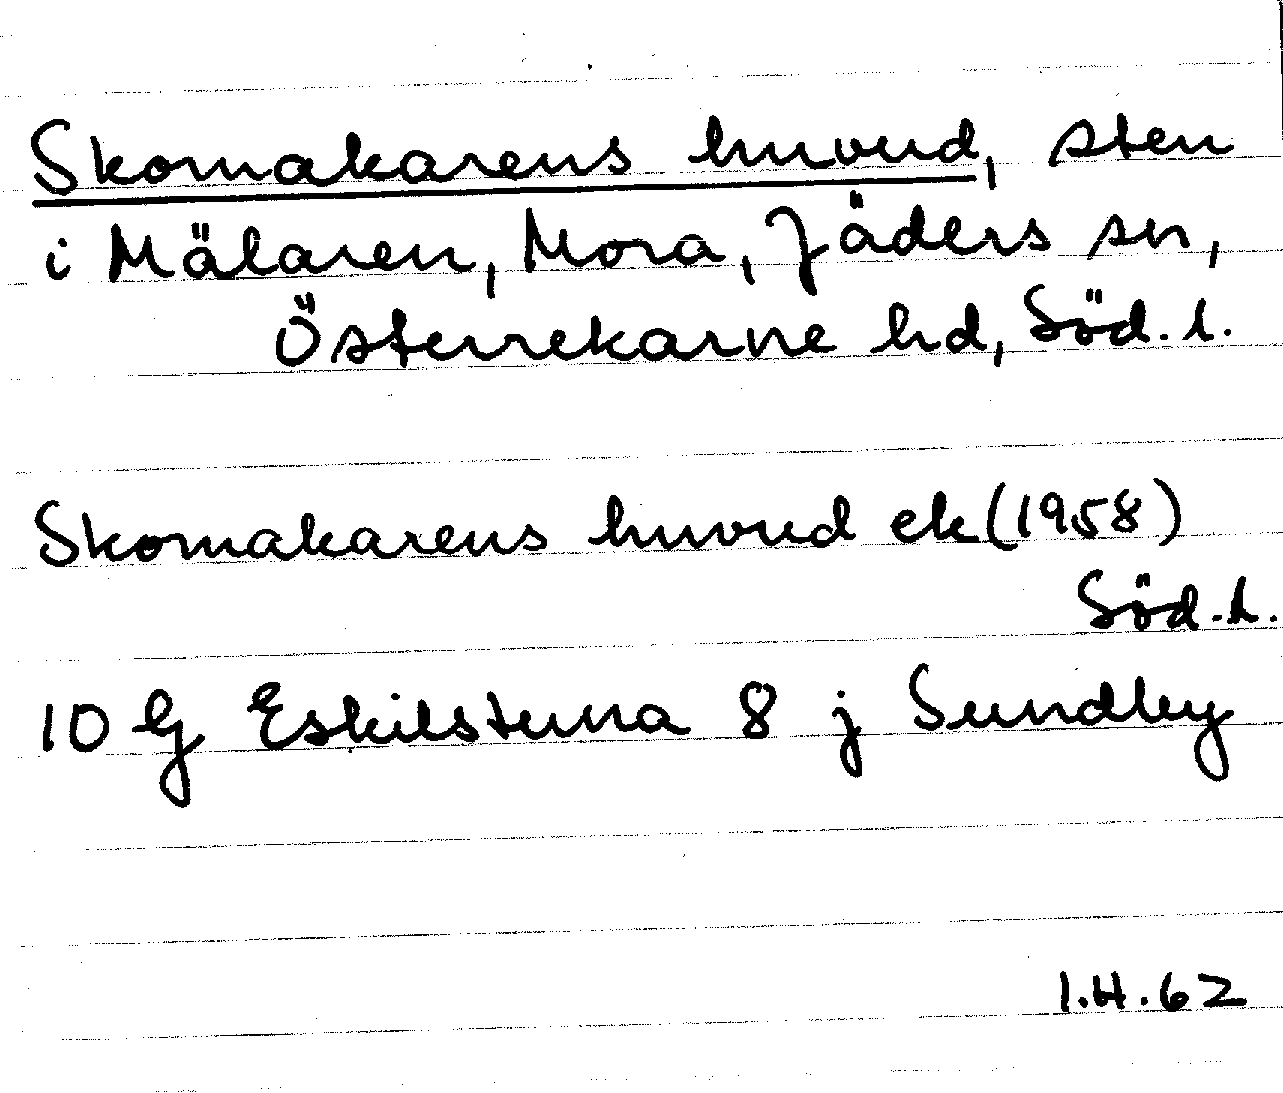 Skomakarens huvud, sten
i Mälaren, Mora, Jäders sn,
Österrekarne hd, Söd. l.
Skomakarens huvud ek (1958)
Söd. l.
10 G Eskilstuna 8 j Sundby
I.H. 62